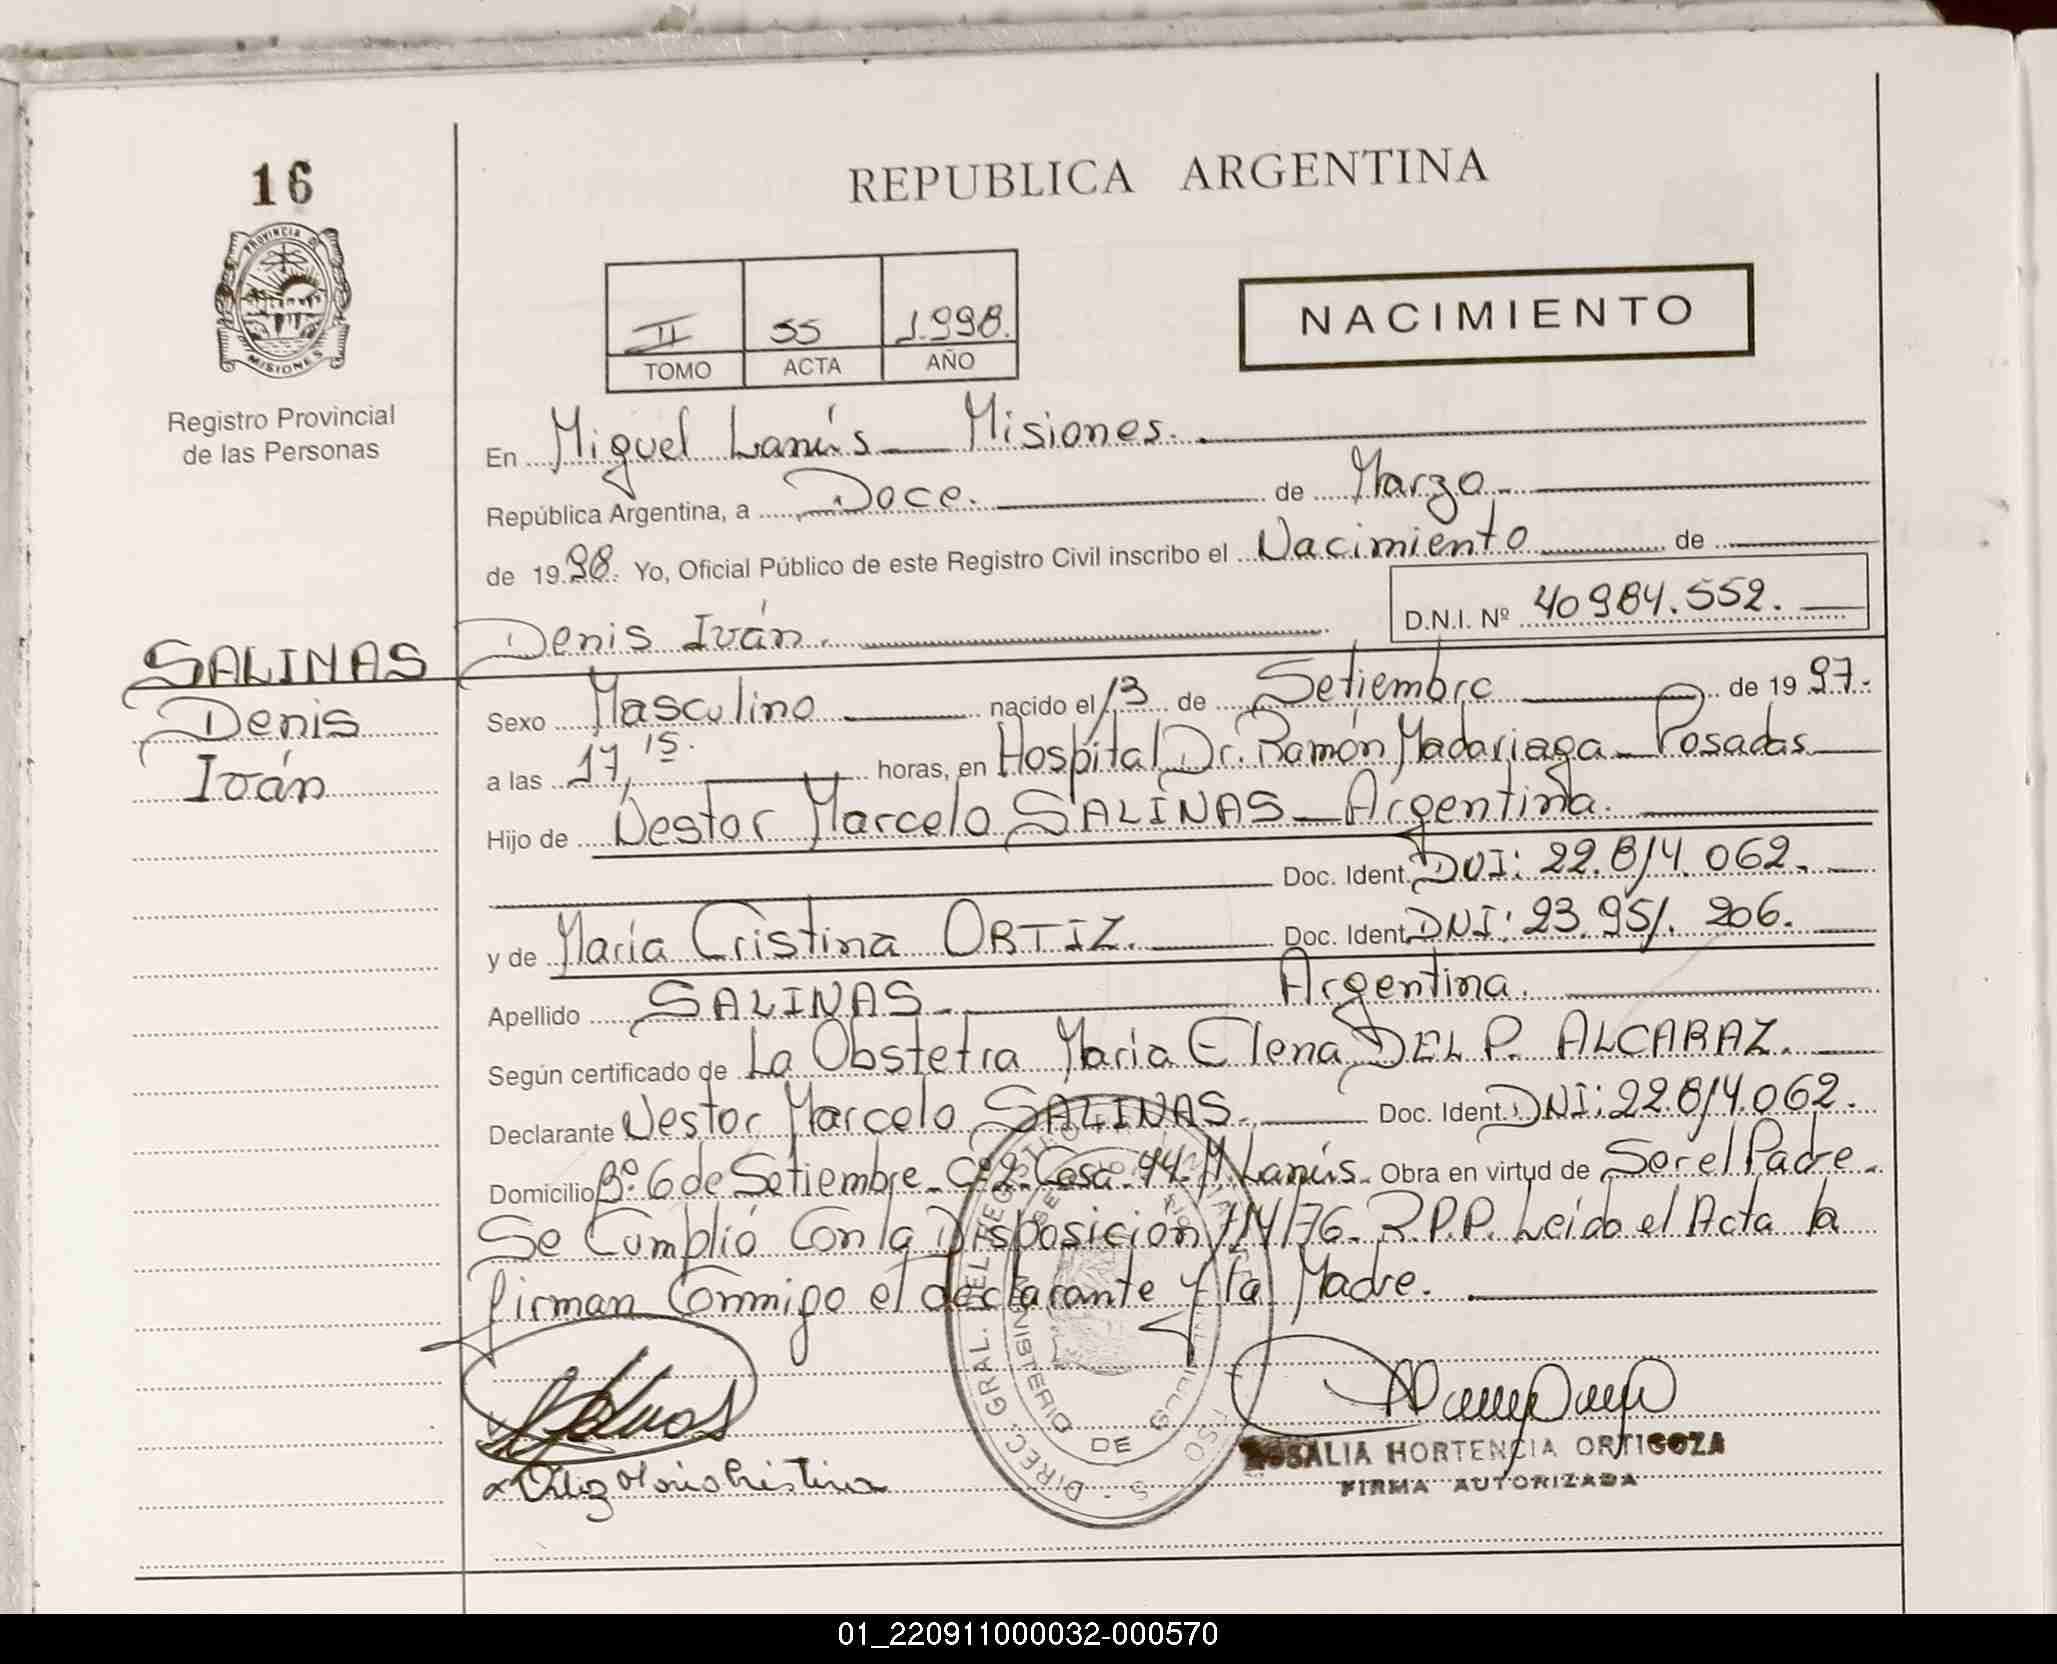 16
PROVINCIA DE
MISIONES
Registro Provincial
de las Personas
REPUBLICA ARGENTINA
II 55 1.998.
TOMO ACTA AÑO
NACIMIENTO
En Miguel Lanús - Misiones.
República Argentina, a Doce. de Marzo
de 19 98. Yo, Oficial Público de este Registro Civil inscribo el Nacimiento de
Denis Iván. D.N.I. Nº 40984.552.
SALINAS
Denis
Iván
Sexo Masculino nacido el 13 de Setiembre de 19 97.
a las 17,15. horas, en Hospital Dr. Ramón Madariaga - Posadas
Hijo de Nestor Marcelo SALINAS - Argentina.
Doc. Ident. DNI: 22.814.062.
y de María Cristina ORTIZ. Doc. Ident. DNI: 23.951.206.
Apellido SALINAS. Argentina.
Según certificado de La Obstetra Maria Elena DEL P. ALCARAZ.
Declarante Nestor Marcelo SALINAS. Doc. Ident. DNI: 22.814.062.
Domicilio Bº. 6 de Setiembre - Casa 44 - M. Lanús. Obra en virtud de Ser el Padre.
Se Cumplió Con la Disposicion /76 - R.P.P. Leida el Acta la
firman Conmigo el declarante y la Madre.
DIREC. GRAL. DEL REGISTRO
MINISTERIO DE
Ortiz Maria Cristina
ROSALIA HORTENCIA ORTIGOZA
FIRMA AUTORIZADA
01_220911000032-000570